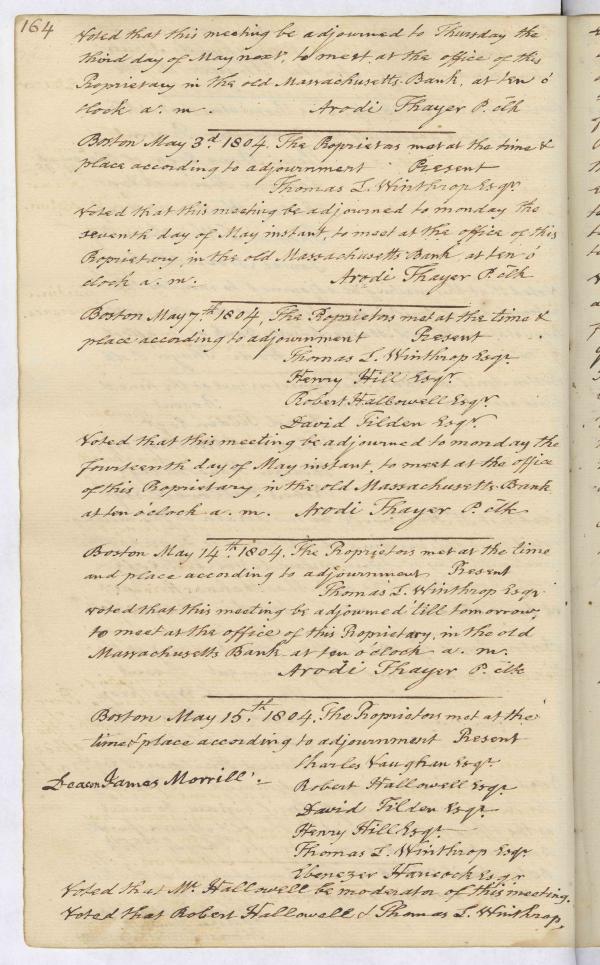 164
Voted that this meeting be adjourned to Thursday the
third day of May next, to meet at the office of this
Proprietary in the old Massachusetts Bank, at ten o'
clock a. m. Arodi Thayer P. clk
Boston May 3d 1804. The Proprietors met at the time &
place according to adjournment Present
Thomas L. Winthrop Esqr
Voted that this meeting be adjourned to monday the
seventh day of May instant, to meet at the office of this
Proprietary, in the old Massachusetts Bank, at ten o'
clock a. m. Arodi Thayer P. clk
Boston May 7th 1804, The Proprietors met at the time &
place according to adjournment Present
Thomas L. Winthrop Esqr.
Henry Hill Esqr.
Robert Hallowell Esqr.
David Tilden Esqr.
Voted that this meeting be adjourned to monday the
fourteenth day of May instant, to meet at the office
of this Proprietary, in the old Massachusetts Bank
at ten o'clock a. m. Arodi Thayer P. clk
Boston May 14th 1804. The Proprietors met at the time
and place according to adjournment Present
Thomas L. Winthrop Esqr
voted that this meeting be adjourned 'till tomorrow,
to meet at the office of this Proprietary, in the old
Massachusetts Bank at ten o'clock a. m.
Arodi Thayer P. clk
Boston May 15th 1804. The Proprietors met at the
time & place according to adjournment Present
Charles Vaughan Esqr.
Deacon James Morrill.
Robert Hallowell Esqr.
David Tilden Esqr.
Henry Hill Esqr.
Thomas L. Winthrop Esqr.
Ebenezer Hancock Esqr
Voted that Mr. Hallowell be moderator of this meeting.
Voted that Robert Hallowell & Thomas L. Winthrop,